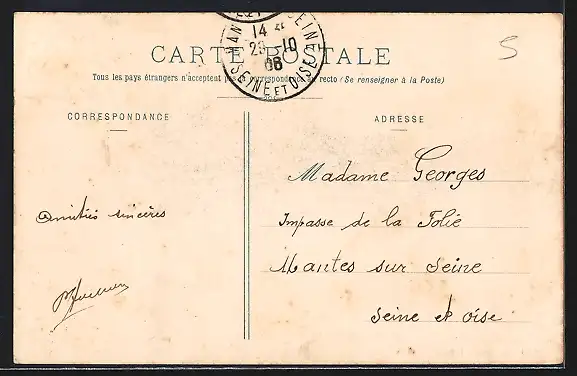 CARTE POSTALE
Tous les pays étrangers n'acceptent pas la correspondance au recto (Se renseigner à la Poste)
14 *
29 -10
08
SEINE ET OISE
5
CORRESPONDANCE
ADRESSE
Amitiés sincères
Madame Georges
Impasse de la Folie
Mantes sur Seine
Seine et Oise